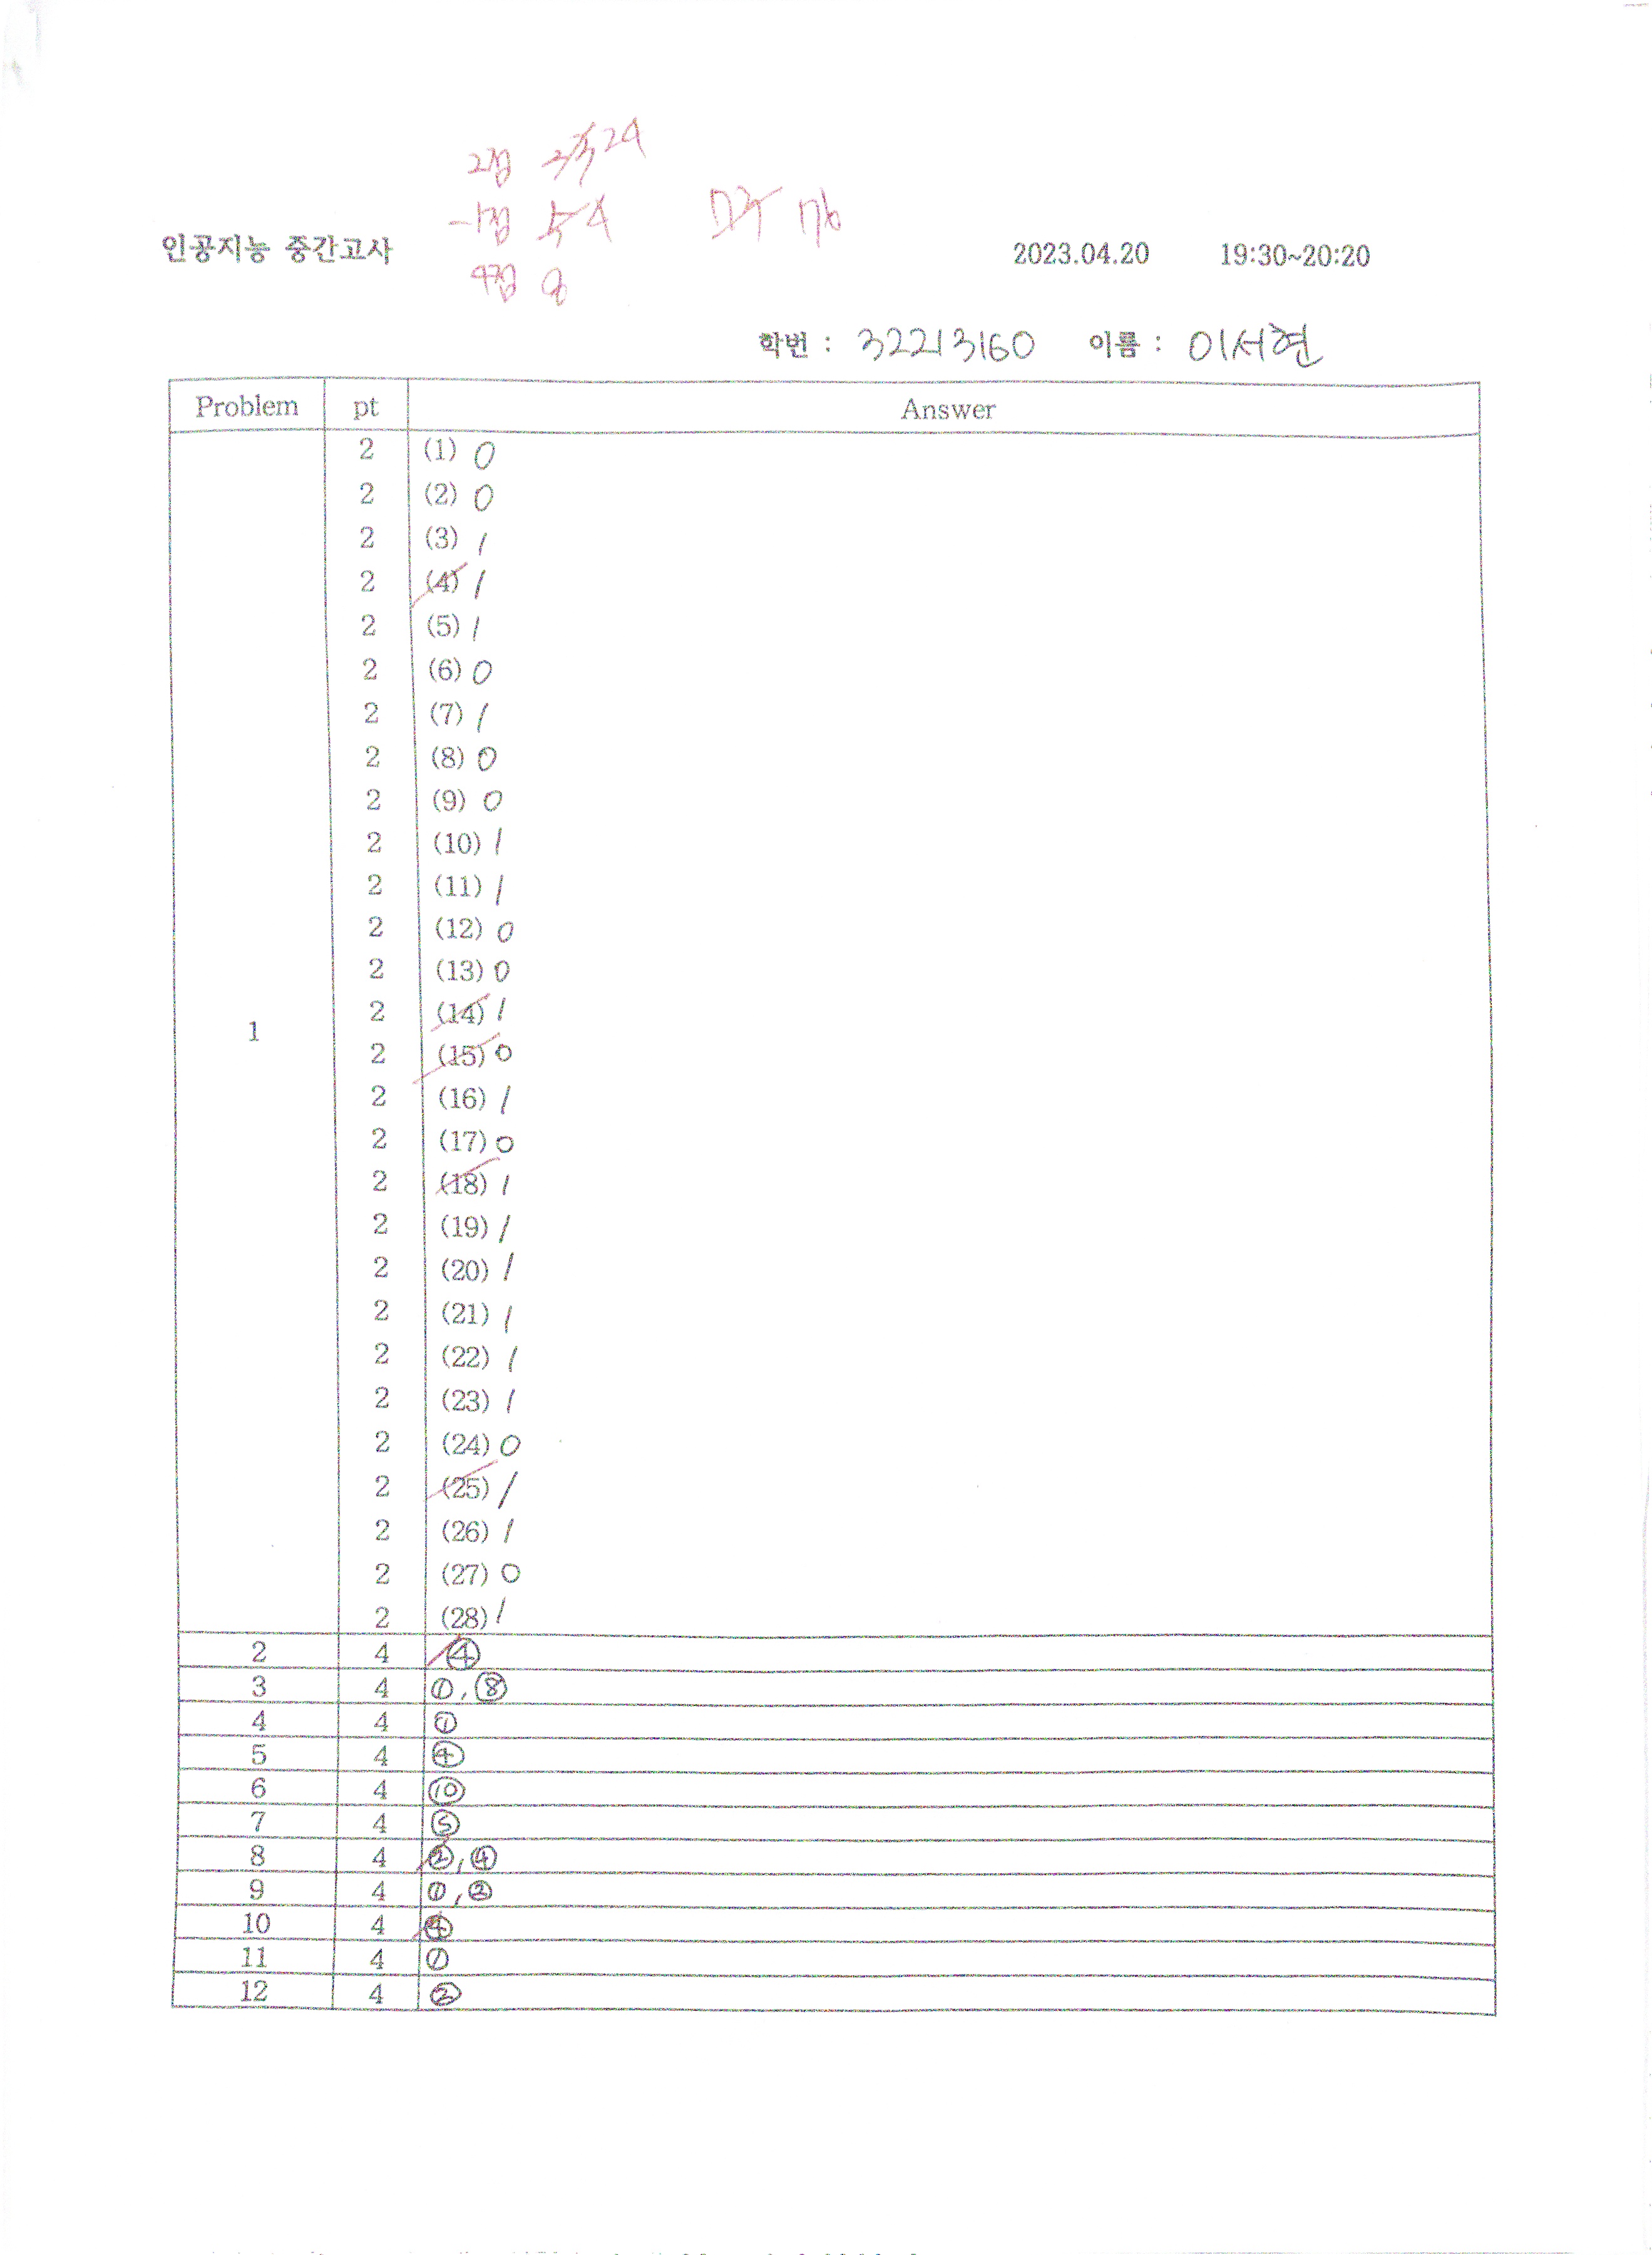 2점 24
-1점 4 76
인공지능 중간고사 2023.04.20 19:30~20:20
4점 8
학번 : 32213160 이름 : 이서현
Problem pt Answer
2 (1) 0
2 (2) 0
2 (3) 1
2 (4) 1
2 (5) 1
2 (6) 0
2 (7) 1
2 (8) 0
2 (9) 0
2 (10) 1
2 (11) 1
2 (12) 0
2 (13) 0
2 (14) 1
1
2 (15) 0
2 (16) 1
2 (17) 0
2 (18) 1
2 (19) 1
2 (20) 1
2 (21) 1
2 (22) 1
2 (23) 1
2 (24) 0
2 (25) 1
2 (26) 1
2 (27) 0
2 (28) 1
2 4 ④
3 4 ①, ⑧
4 4 ①
5 4 ④
6 4 ⑩
7 4 ⑤
8 4 ②, ④
9 4 ①, ②
10 4 ④
11 4 ①
12 4 ②